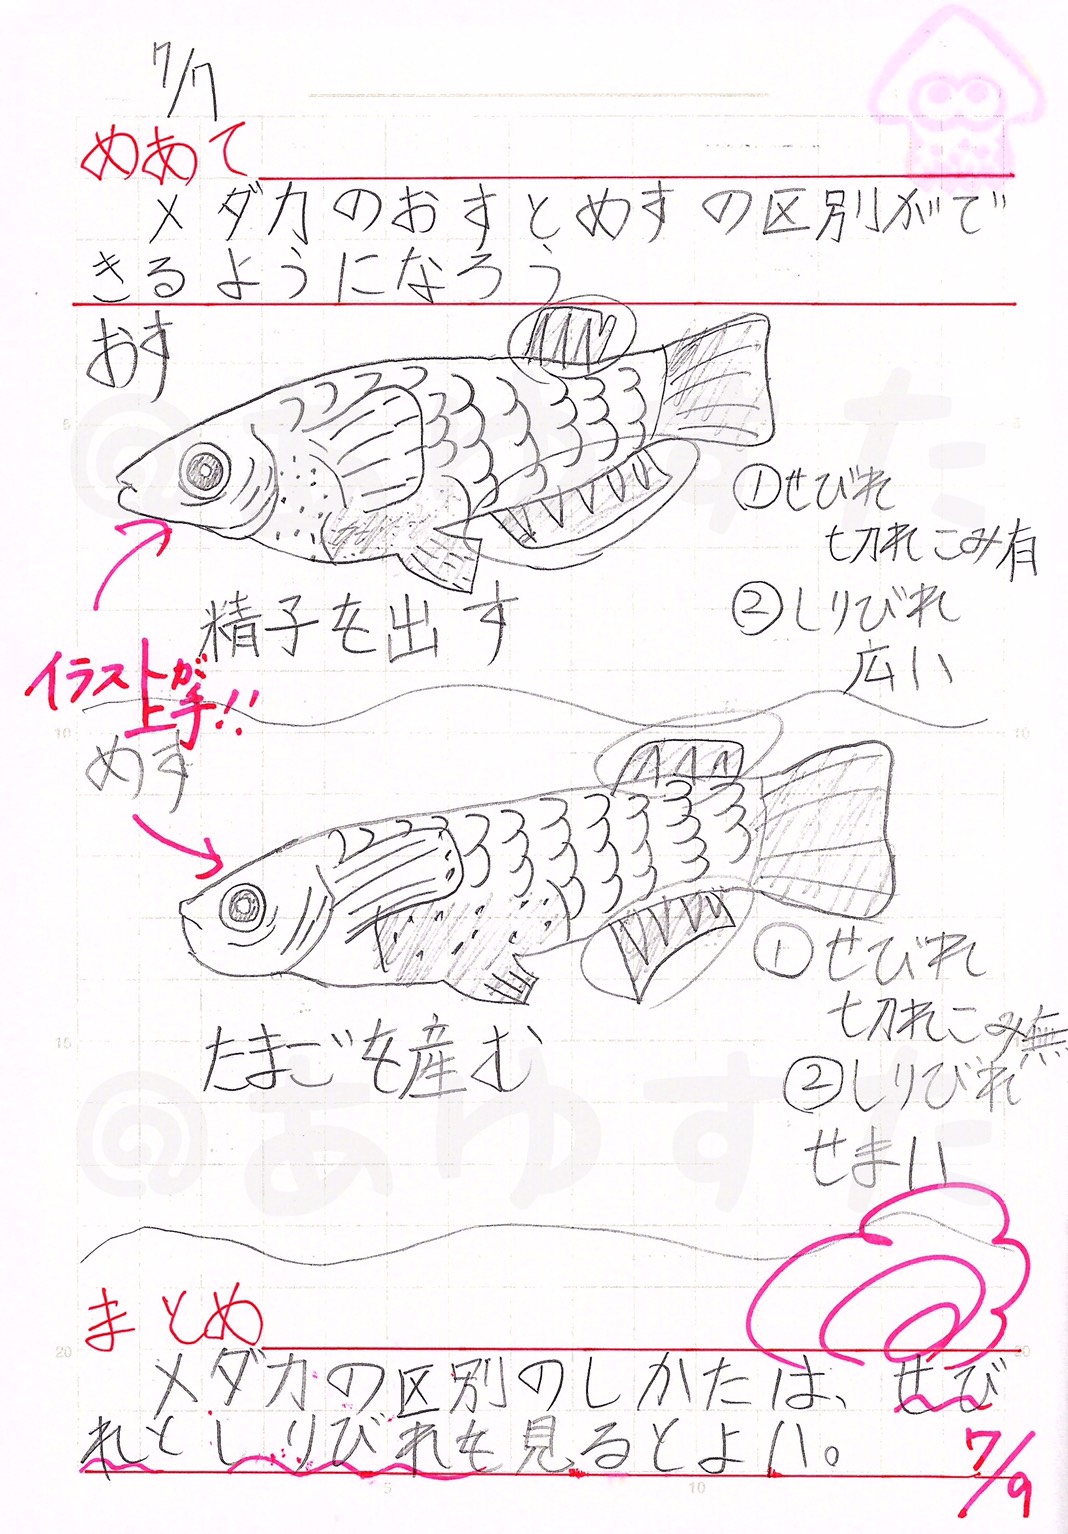 7/7
めあて
メダカのおすとめすの区別がで
きるようになろう
おす
①せびれ
切れこみ有
②しりびれ
広い
精子を出す
イラストが
上手!!
めす
①せびれ
切れこみ無
②しりびれ
せまい
たまごを産む
まとめ
メダカの区別のしかたは、せび
れとしりびれを見るとよい。
7/9
@あゆすた
@あゆすた
5
10
10
15
20
20
5
10